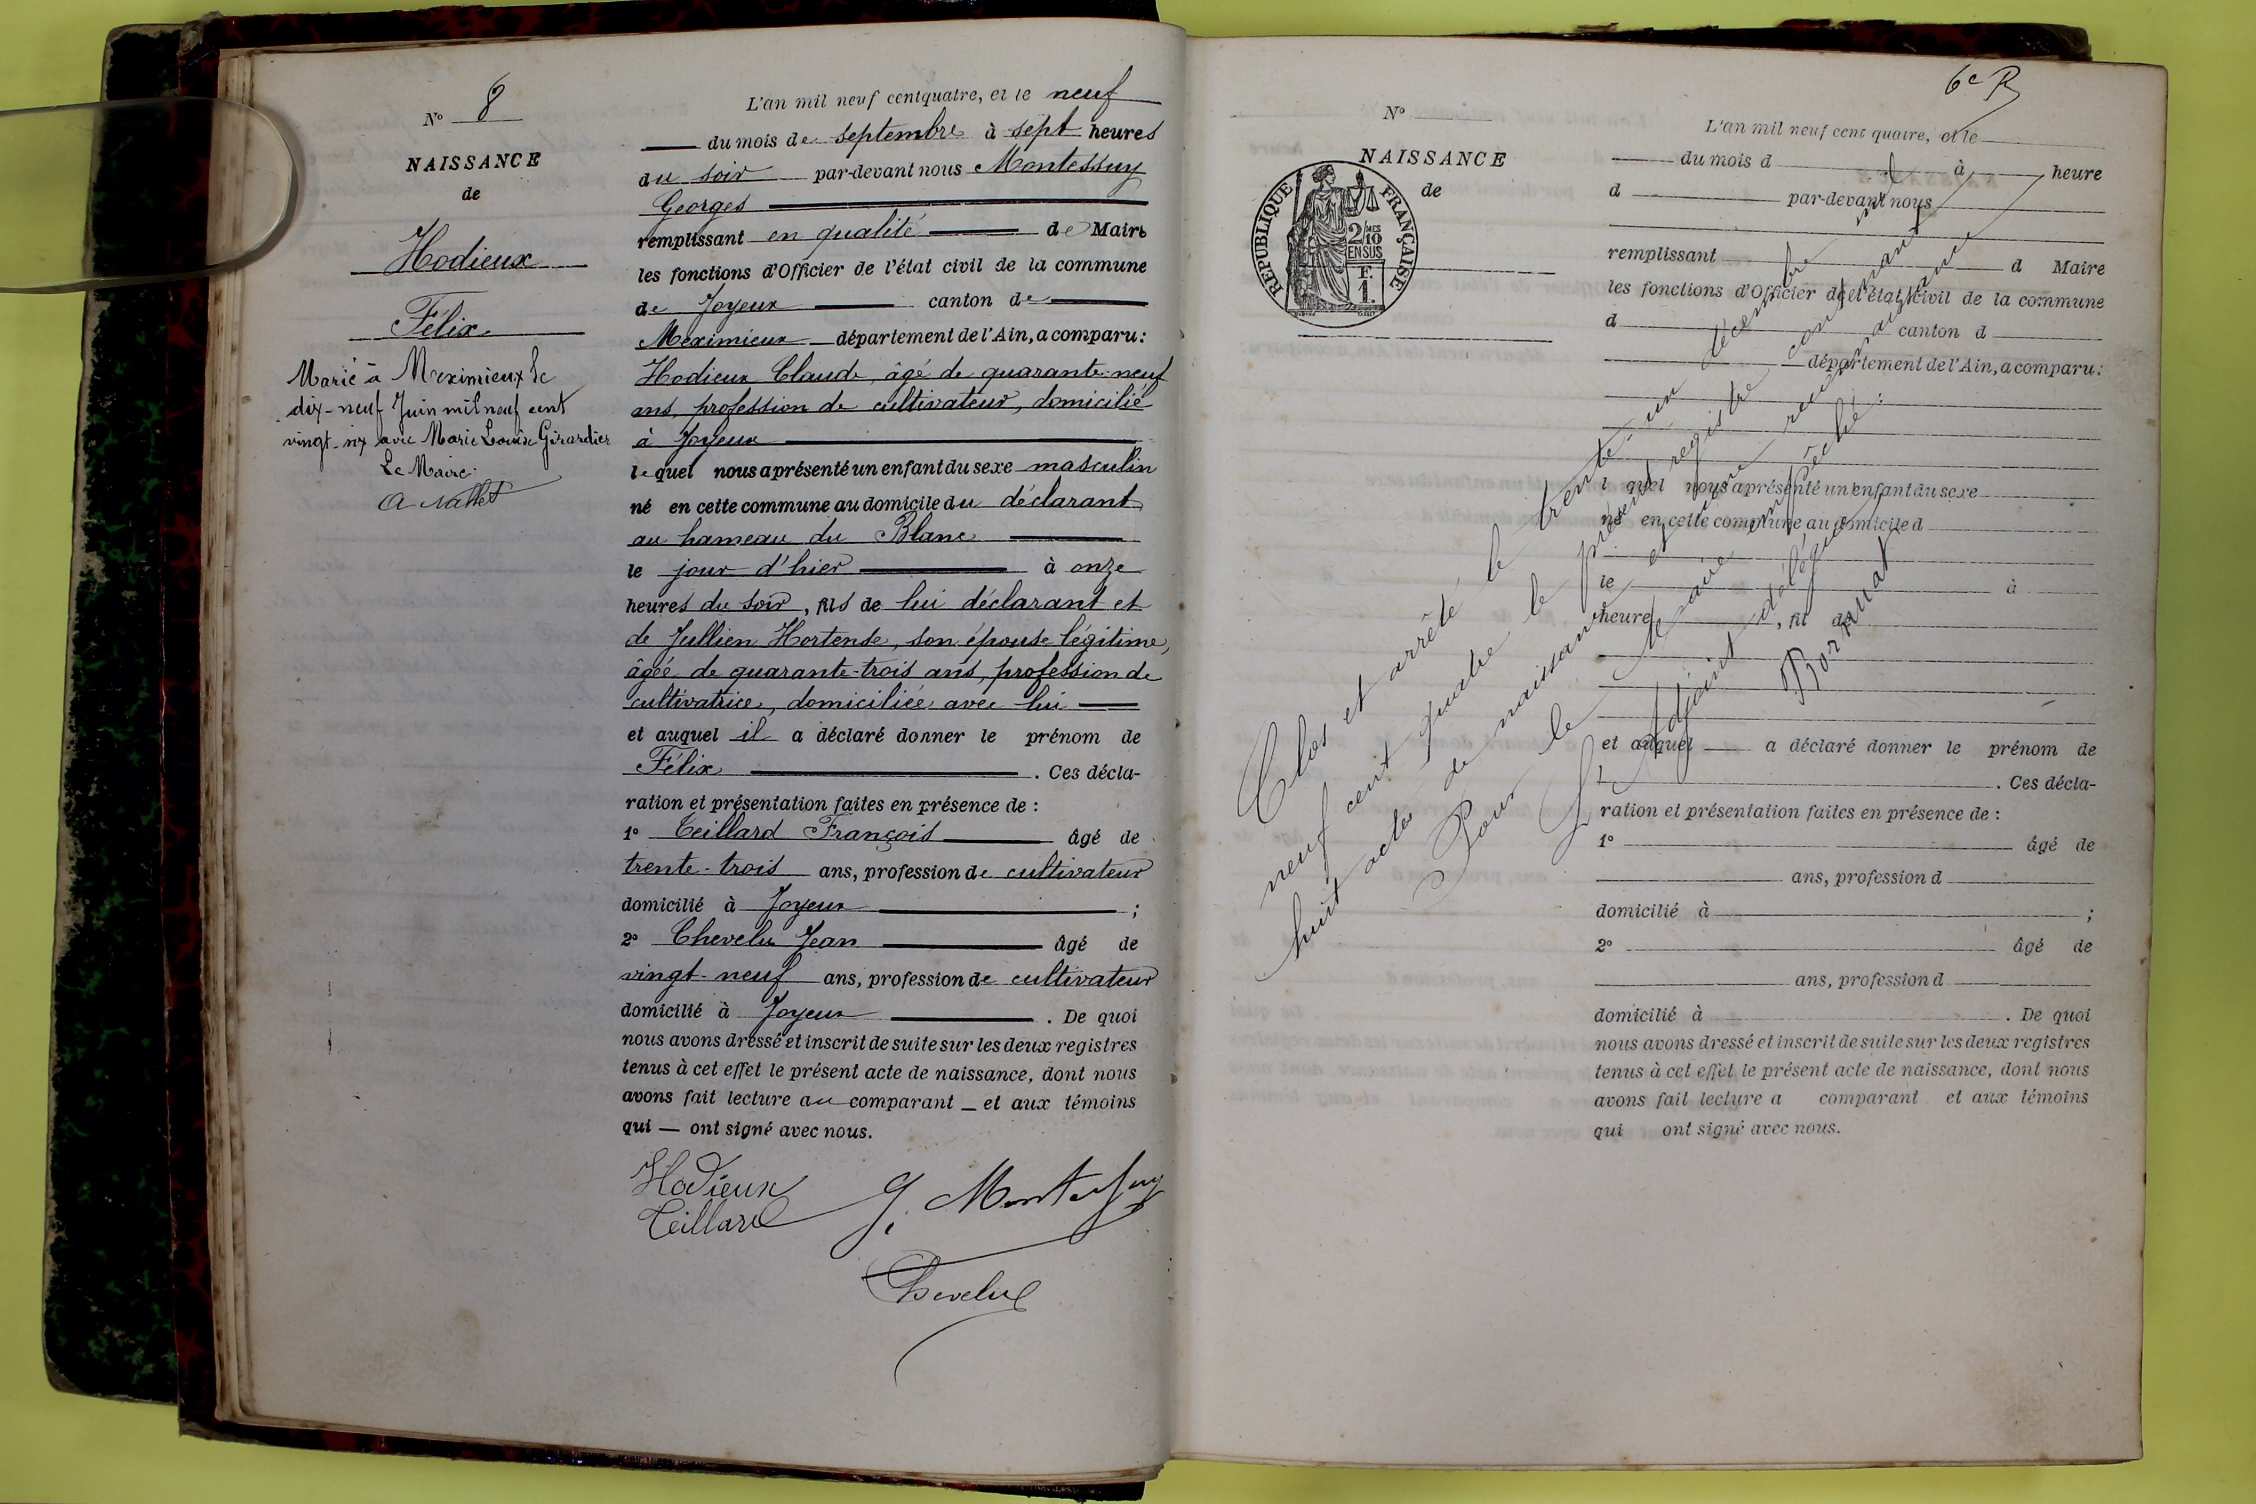 N° 8
NAISSANCE
de
Hodieux
Félix
Marié à Meximieux le
dix-neuf Juin mil neuf cent
vingt-six avec Marie Louise Girardier
Le Maire:
A Nallet
L'an mil neuf cent quatre, et le neuf
du mois de septembre à sept heures
du soir par-devant nous Montessuy
Georges
remplissant en qualité de Maire
les fonctions d'Officier de l'état civil de la commune
de Joyeux canton de
Meximieux département de l'Ain, a comparu:
Hodieux Claude, âgé de quarante-neuf
ans, profession de cultivateur, domicilié
à Joyeux
lequel nous a présenté un enfant du sexe masculin
né en cette commune au domicile du déclarant
au hameau du Blanc
le jour d'hier à onze
heures du soir, fils de lui déclarant et
de Jullien Hortense, son épouse légitime,
âgée de quarante-trois ans, profession de
cultivatrice, domiciliée avec lui
et auquel il a déclaré donner le prénom de
Félix . Ces décla-
ration et présentation faites en présence de :
1° Teillard François âgé de
trente-trois ans, profession de cultivateur
domicilié à Joyeux ;
2° Chevelu Jean âgé de
vingt-neuf ans, profession de cultivateur
domicilié à Joyeux . De quoi
nous avons dressé et inscrit de suite sur les deux registres
tenus à cet effet le présent acte de naissance, dont nous
avons fait lecture au comparant et aux témoins
qui — ont signé avec nous.
Hodieux
Teillard
G. Montessuy
Chevelu
6e R
N°
NAISSANCE
de
REPUBLIQUE FRANÇAISE
2/10 MES
EN SUS
F
1
L'an mil neuf cent quatre, et le
du mois d à heure
d par-devant nous
remplissant d Maire
les fonctions d'Officier de l'état civil de la commune
d canton d
département de l'Ain, a comparu:
l quel nous a présenté un enfant du sexe
né en cette commune au domicile d
le à
heure , fil de
et auquel a déclaré donner le prénom de
. Ces décla-
ration et présentation faites en présence de :
1° âgé de
ans, profession d
domicilié à ;
2° âgé de
ans, profession d
domicilié à . De quoi
nous avons dressé et inscrit de suite sur les deux registres
tenus à cet effet le présent acte de naissance, dont nous
avons fait lecture a comparant et aux témoins
qui ont signé avec nous.
Clos et arrêté le trente-un décembre mil
neuf cent quatre le présent registre contenant
huit actes de naissance et une reconnaissance
Pour le Maire empêché:
L'Adjoint délégué,
Bornuat